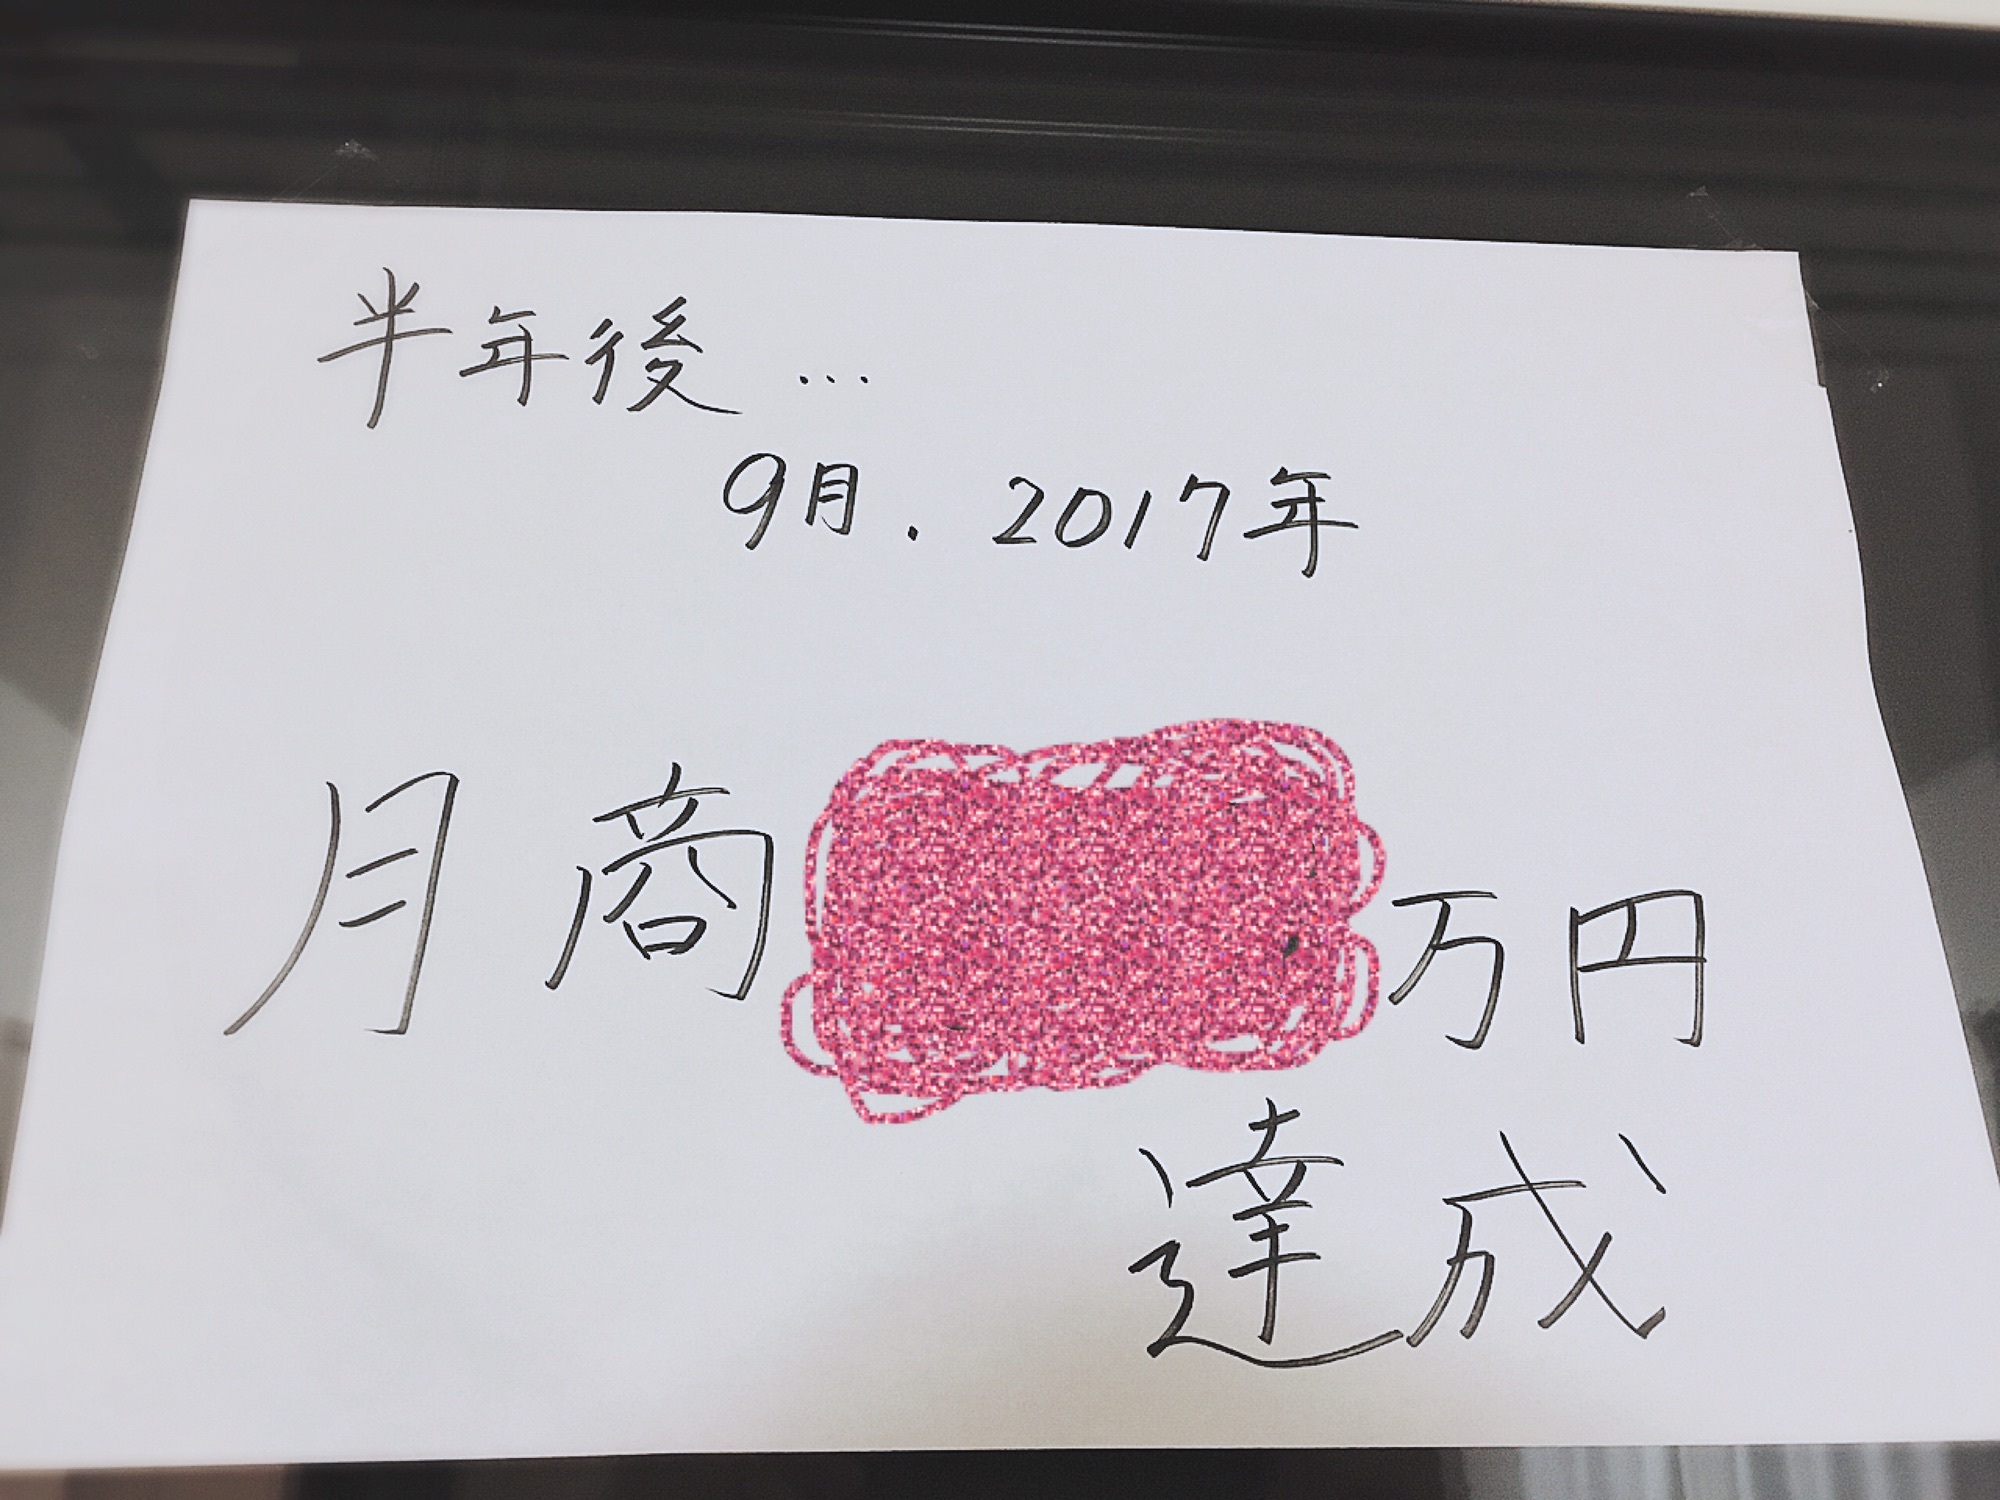 半年後...
9月.2017年
月商 万円
達成